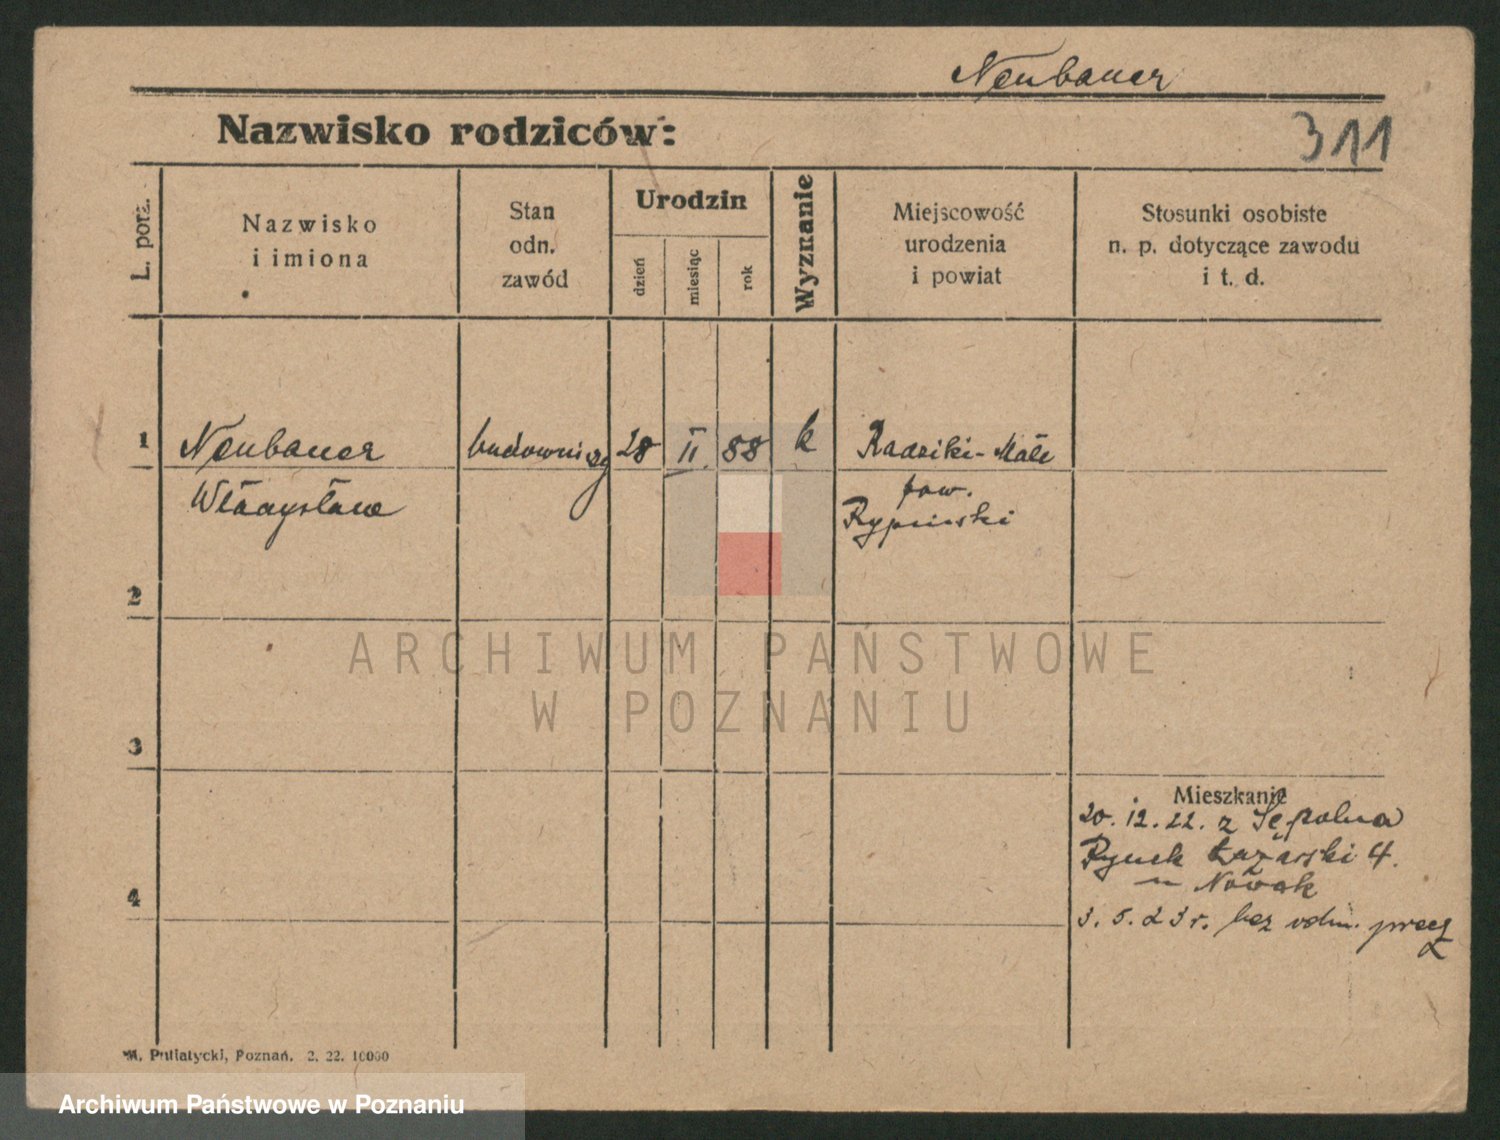 Neubauer
Nazwisko rodziców:
311
L. porz.
Nazwisko
i imiona
Stan
odn.
zawód
Urodzin
dzień
miesiąc
rok
Wyznanie
Miejscowość
urodzenia
i powiat
Stosunki osobiste
n. p. dotyczące zawodu
i t. d.
1
Neubauer
budowniczy
28
II.
88
k
Radziki-Małe
Władysław
pow.
Rypiński
2
ARCHIWUM PAŃSTWOWE
W POZNANIU
3
Mieszkanie
20.12.22. z Sępolna
Rynek Łazarski 4.
u Nowak
4
3.5.23 r. bez odm.
M. Putiatycki, Poznań. 2. 22. 10000
Archiwum Państwowe w Poznaniu